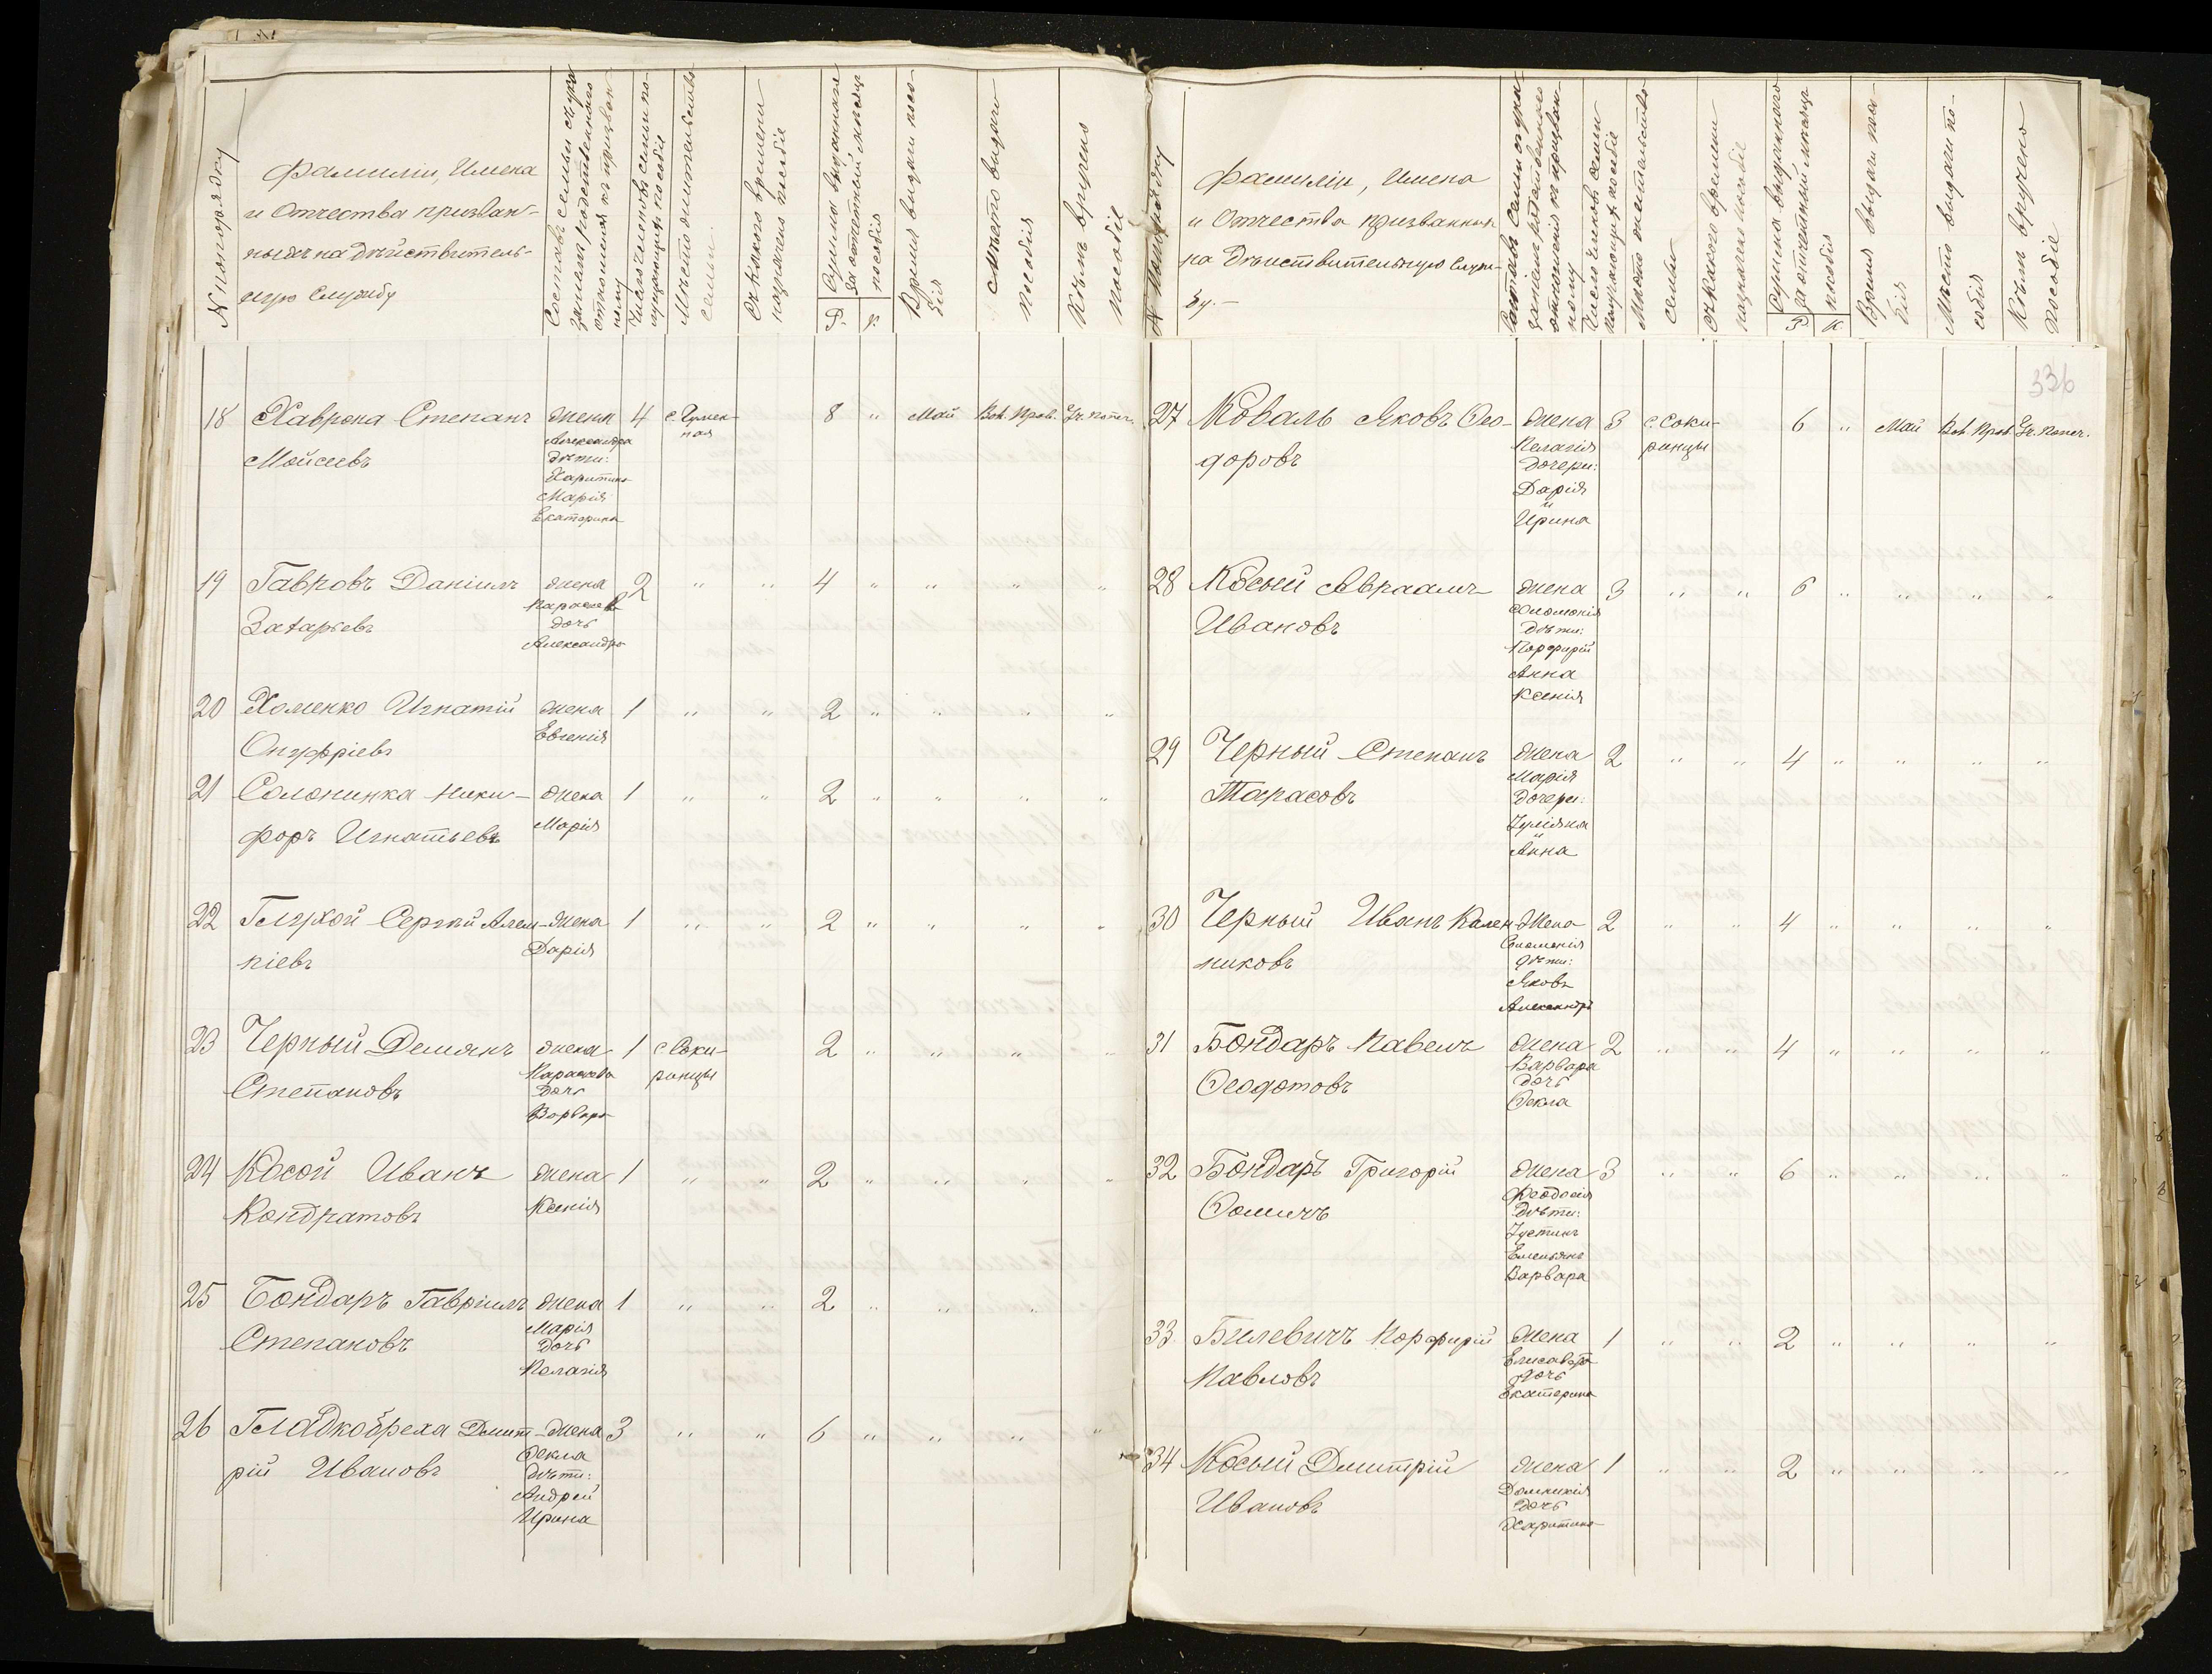 № по порядку
Фамиліи, Имена
и Отчества призван-
ныхъ на дѣйствитель-
ную службу
Составъ семьи съ ука
заніемъ родственнаго
отношенія къ призван
ному
Число членовъ семьи по-
лучающихъ пособіе
Мѣсто жительства
семьи.
Съ какого времени
назначено пособіе
Сумма выданнаго
за отчетный мѣсяцъ
пособія
Р. к.
Время выдачи посо-
бія
Мѣсто выдачи
пособія
Кѣмъ вручено
пособіе
18 Хаврона Степанъ жена 4 с. 8 " Май Вол. Прав. Уч. попеч.
Мойсеевъ
Александра
дѣти:
Харитина
Марія
Екатерина
19 Гавровъ Даніилъ жена 2 " " 4 " " " "
Захарьевъ
Параскева
дочь
Александра
20 Хоменко Игнатій жена 1 " " 2 " " " "
Онуфріевъ
Евгенія
21 Солонинка Ники- жена 1 " " 2 " " " "
форъ Игнатьевъ
Марія
22 Глухой Сергѣй жена 1 " " 2 " " " "
піевъ
Дарія
23 Черный Демянъ жена 1 с. Соки- 2 " " " "
Степановъ ринцы
Параскева
дочь
Варвара
24 Косой Иванъ жена 1 " " 2 " " " "
Кондратовъ
Ксенія
25 Бондарь Гавріилъ жена 1 " " 2 " " " "
Степановъ
Марія
дочь
Пелагія
26 Гладкобреха Дмит- жена 3 " " 6 " " " "
рій Ивановъ
Ѳекла
дѣти:
Андрей
Ирина
№ по порядку
Фамиліи, Имена
и Отчества призванныхъ
на дѣйствительную служ-
бу.-
Составъ семьи съ ука
заніемъ родственнаго
отношенія къ призван-
ному
Число членовъ семьи
получающихъ пособіе
Мѣсто жительства
семьи
Съ какого времени
назначено пособіе
Сумма выданнаго
за отчетный мѣсяцъ
пособія
Р. К.
Время выдачи посо-
бія
Мѣсто выдачи по-
собія
Кѣмъ вручено
пособіе
336
27 Коваль Яковъ Ѳео- жена 3 с. Соки- 6 " Май Вол. Прав. Уч. попеч.
доровъ ринцы
Пелагія
дочери:
Дарія
и
Ирина
28 Косый Авраамъ жена 3 " " 6 " " " "
Ивановъ
Соломонія
дѣти:
Порфирій
Анна
Ксенія
29 Черный Степанъ жена 2 " " 4 " " " "
Тарасовъ
Марія
дочери:
Іуліяна
и
Анна
30 Черный Иванъ Кален- жена 2 " " 4 " " " "
никовъ
Соломонія
дѣти:
Яковъ
Александръ
31 Бондарь Павелъ жена 2 " " 4 " " " "
Ѳеодотовъ
Варвара
дочь
Ѳекла
32 Бондарь Григорій жена 3 " " 6 " " " "
Ѳомичъ
Ѳеодосія
дѣти:
Іустинъ
Емельянъ
Варвара
33 Билевичъ Порфирій жена 1 " " 2 " " " "
Павловъ
Елисавета
дочь
Екатерина
34 Косый Дмитрій жена 1 " " 2 " " " "
Ивановъ
Домникія
дочь
Харитина